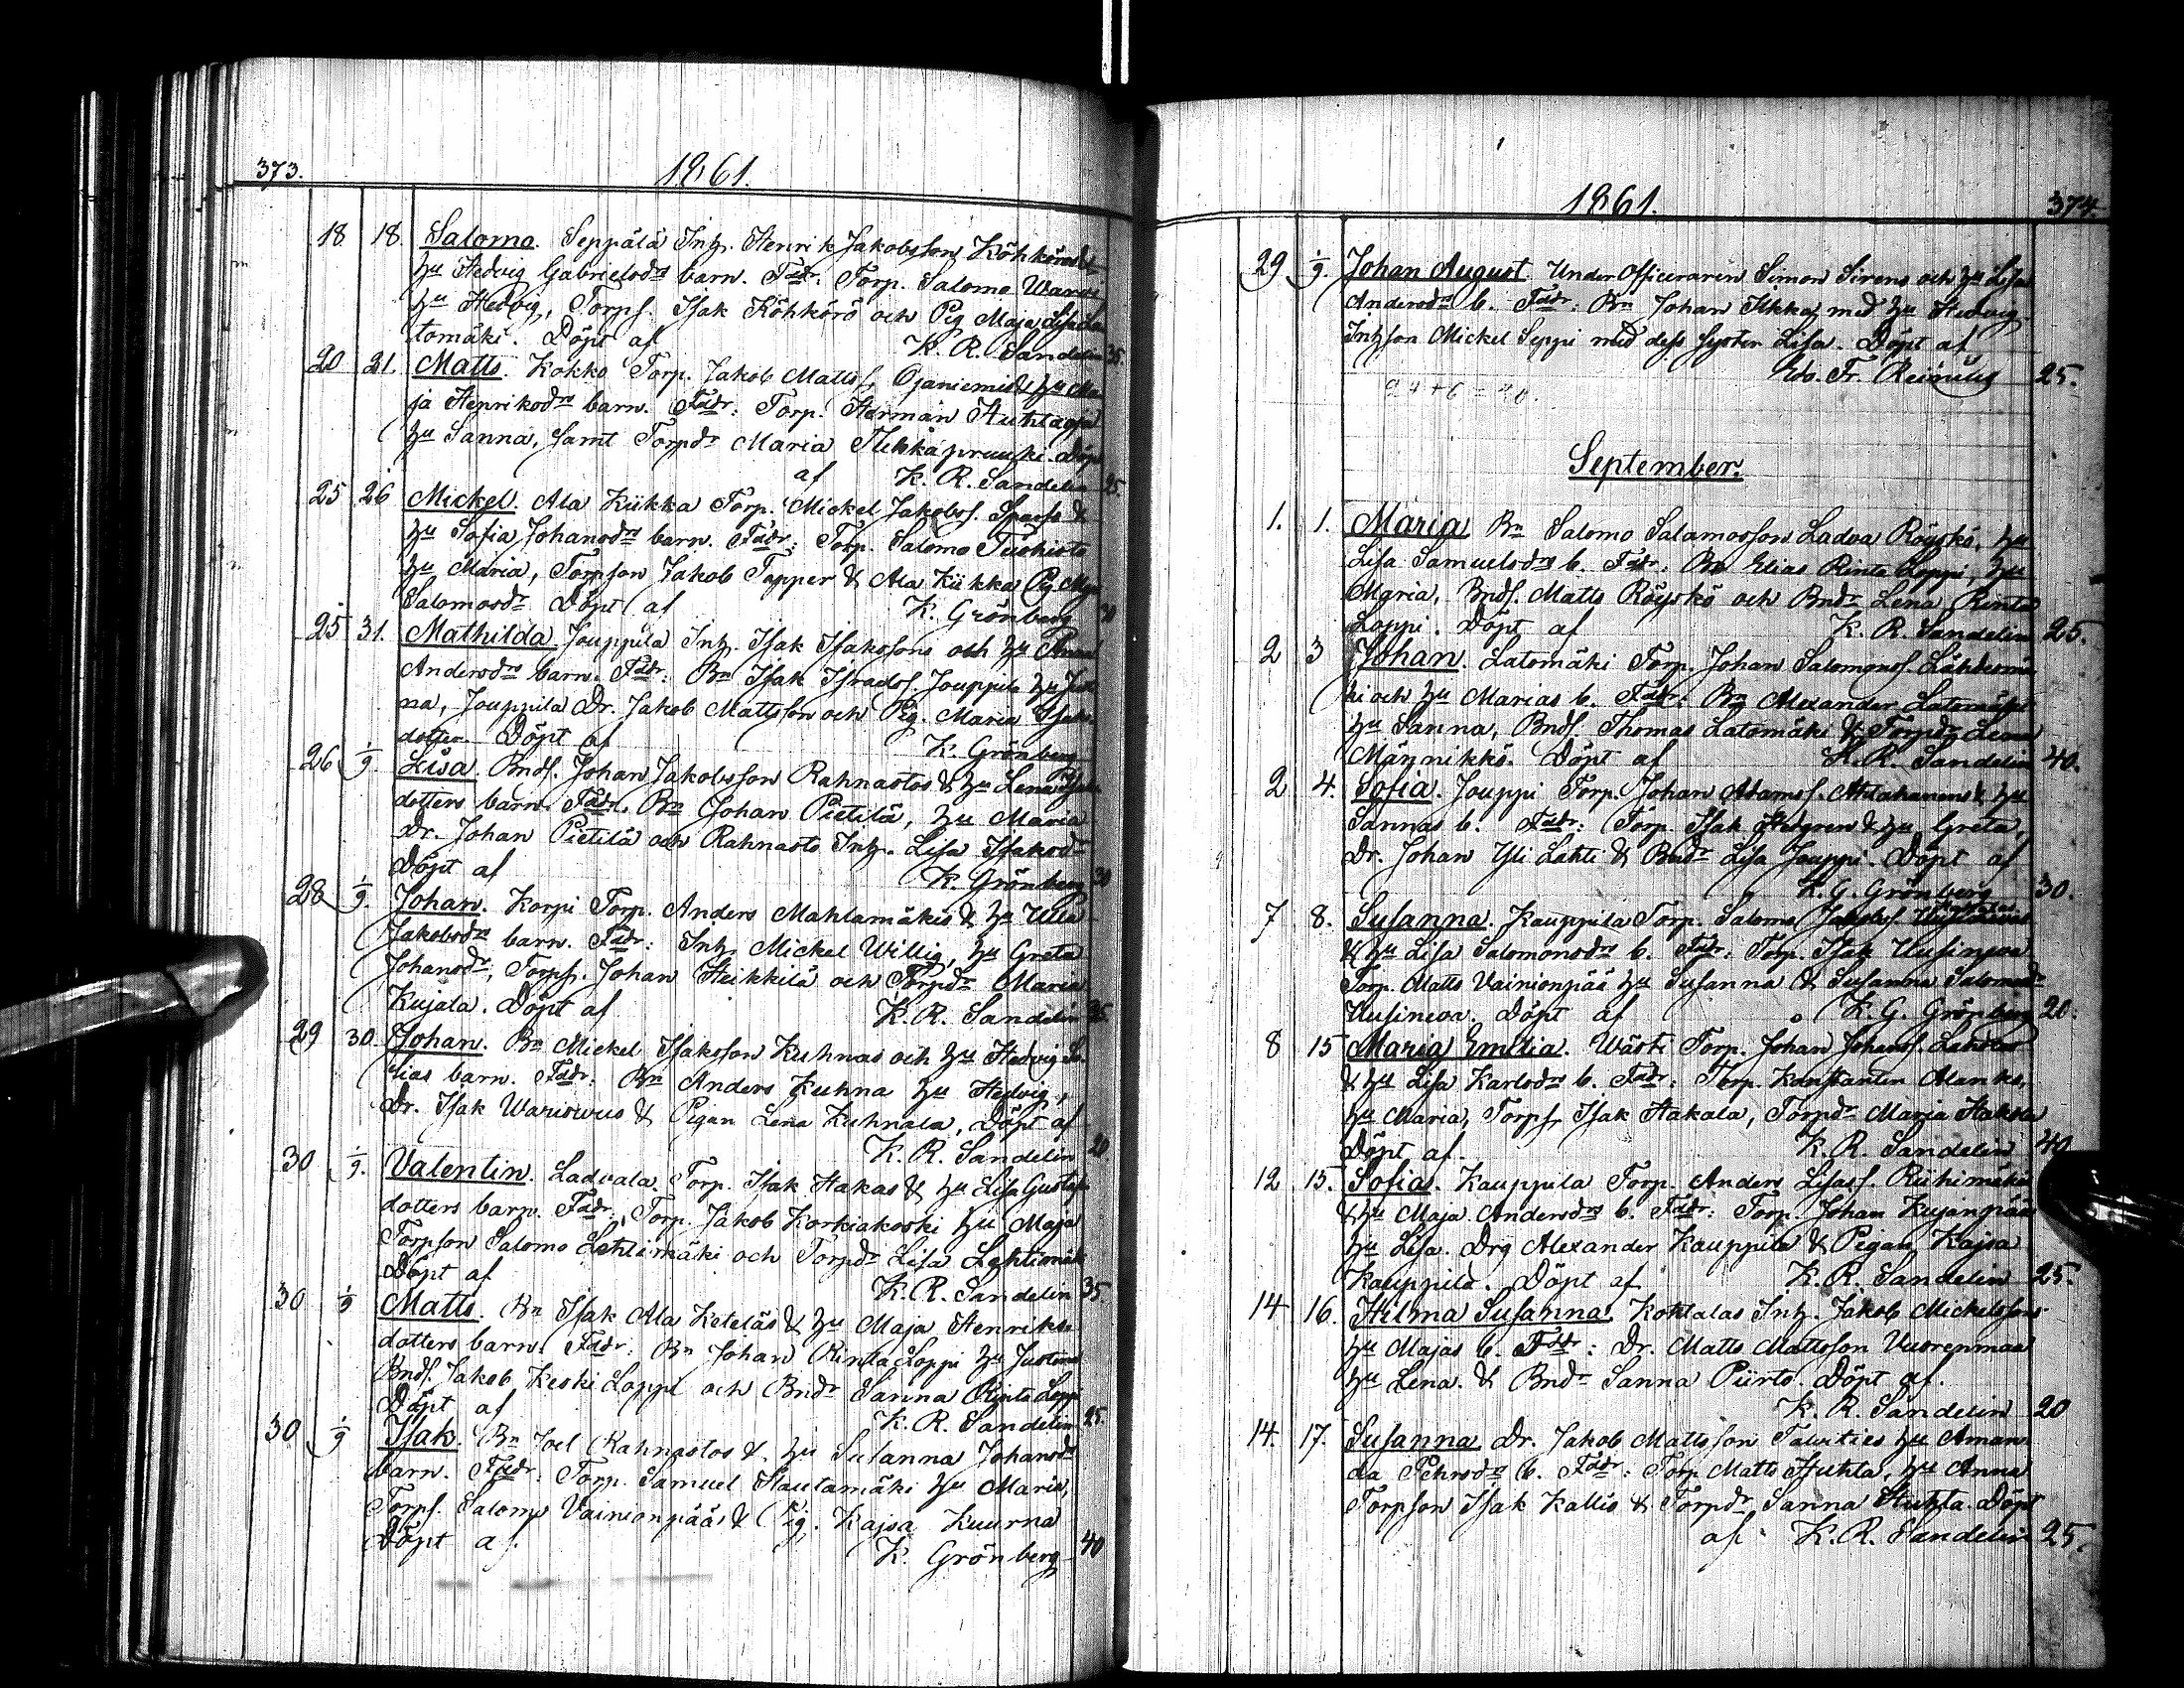 373.
1861.
18 18. Salomo. Seppälä Inh. Henrik Jakobsson Köhkörös &
hu Hedvig Gabrielsdrs barn. Fadr: Torp. Salomo
hu Hedvig, Torps. Isak Köhkörö och Pig Maja Lisa
tomäki. Döpt af K. R. Sandelin 35.
20 21. Matts. Kokko Torp. Jakob Mattss. Ojaniemis & hu Ma
ja Henriksdrs barn. Fadr: Torp. Herman Huhtaoja
hu Sanna, samt Torpdr Maria Döpt
af K. R. Sandelin 25.
25 26 Mickel. Ala Kiikka Torp. Mickel Jakobss. &
hu Sofia Johansdrs barn. Fadr: Torp. Salomo Tuohisto
hu Maria, Torpson Jakob Tapper & Ala Kiikka Pig Maja
Salomosdr. Döpt af K. Grönberg 30
25 31. Mathilda. Jouppila Inh. Isak Isakssons och hu Anna
Andersdrs barn. Fadr: Bn Isak Jouppila hu
na, Jouppila Dr. Jakob Mattsson och Pig. Maria Isaks
dotter. Döpt af K. Grönberg
26 1/9. Lisa. Bnds. Johan Jakobsson Rahnastos & hu Lena
dotters barn. Fadr. Bn Johan Pietilä, hu Maria
Dr. Johan Pietilä och Rahnasto Inh. Lisa Isaksdr
Döpt af K. Grönberg 30
28 1/9. Johan. Korpi Torp. Anders Mahlamäkis & hu Ulla
Jakobsdrs barn. Fadr: Inh. Mickel Willig, hu Greta
Johansdr, Torps. Johan Heikkilä och Torpdr Maria
Kujala. Döpt af K. R. Sandelin 35.
29 30. Johan. Bn Mickel Isaksson Kuhnas och hu Hedvig E
lias barn. Fadr: Bn Anders Kuhna hu Hedvig,
Dr. Isak & Pigan Lena Kuhnala, Döpt af
K. R. Sandelin 20
30 1/9. Valentin. Ladvala. Torp. Isak Hakas & hu Lisa Gustafs
dotters barn. Fadr: Torp. Jakob Korkiakoski hu Maja
Torpson Salomo Lehtimäki och Torpdr Lisa Lehtimäki
Döpt af K. R. Sandelin 35
30 1/9 Matts. Bn Isak Ala Keteläs & hu Maja Henriks
dotters barn. Fadr: Bn Johan Rinta Loppi hu Justina
Bnds. Jakob Keski Loppi och Bndr Sanna Rinta Loppi
Döpt af K. R. Sandelin 25.
30 1/9 Isak. Bn Joel Rahnastos & hu Susanna Johansdrs
barn. Fadr: Torp. Samuel Hautamäki hu Maria,
Torps. Salomo Vainionpää & Pig. Kajsa Kuurna
Döpt af. K. Grönberg 40
1861.
374.
29 1/9. Johan August. Under Officeraren Simon Sirens och hu Lisa
Andersdrs b. Fadr: Bn Johan Ilkka, med hu Hedvig
Inhson Mickel Seppi med dess syster Lisa. Döpt af
Edv. Fr. Reinius 25.
24 + 6 = 30.
September.
1. 1. Maria Bn Salomo Salomosson Ladva Röyskö, hu
Lisa Samuelsdrs b. Fadr: Bn Elias Rinta Loppi, hu
Maria, Bnds. Matts Röyskö och Bndr Lena Rinta
Loppi. Döpt af K. R. Sandelin 25.
2 3 Johan. Latomäki Torp. Johan Salomonss. Lähdesmä
ki och hu Marias b. Fadr: Bn Alexander Latomäki
hu Sanna, Bnds. Thomas Latomäki & Torpdr Leena
Männikkö. Döpt af K. R. Sandelin 40.
2 4. Sofia. Jouppi Torp. Johan Adamss. & hu
Sannas b. Fadr: Torp. Isak Hedgren & hu Greta,
Dr. Johan Yli Lahti & Bndr Lisa Jouppi. Döpt af
K. G. Grönberg 30.
7 8. Susanna. Kauppila Torp. Salomo Jakobss.
& hu Lisa Salomonsdrs b. Fadr: Torp. Isak Uusineva
Torp. Matts Vainionpää hu Susanna & Susanna Salomosdr
Uusineva. Döpt af K. G. Grönberg 20.
8 15 Maria Emilia. Wästi Torp. Johan Johanss.
& hu Lisa Karlsdrs b. Fadr: Torp. Konstantin Alanko,
hu Maria, Torps. Isak Hakala, Torpdr Maria Hakola
Döpt af. K. R. Sandelin 40
12 15. Sofia. Kauppila Torp. Anders Riihimäkis
& hu Maja Andersdrs b. Fadr: Torp. Johan Kujanpää
hu Lisa. Drg Alexander Kauppila & Pigan Kajsa
Kauppila. Döpt af K. R. Sandelin 25.
14 16. Hilma Susanna. Kohtalas Inh. Jakob Mickelssons
hu Majas b. Fadr: Dr. Matts Mattsson Vuorenmaa
hu Lena. & Bndr Sanna Piirto. Döpt af.
K. R. Sandelin 20
14. 17. Susanna. Dr. Jakob Mattsson Talvities hu Aman
da Pehrsdrs b. Fadr: Torp Matts Huhta, hu Anna
Torpson Isak Kallio & Torpdr Sanna Huhta. Döpt
af K. R. Sandelin 25.